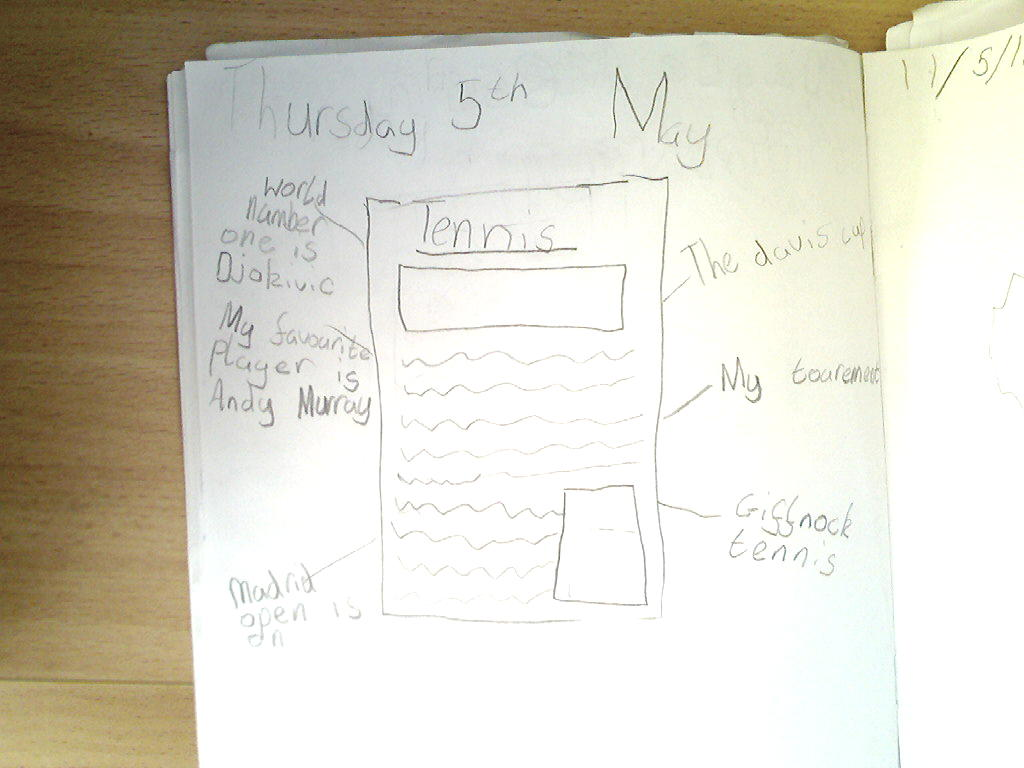 Thursday 5th May
Tennis
world
number
one is
Djokivic
My favourite
Player is
Andy Murray
Madrid
open is
on
The davis cup
My tourement
Giffnock
tennis
11/5/1